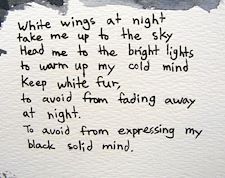 White wings at night
take me up to the sky
Head me to the bright lights
to warm up my cold mind
Keep white fur,
to avoid from fading away
at night.
To avoid from expressing my
black solid mind.